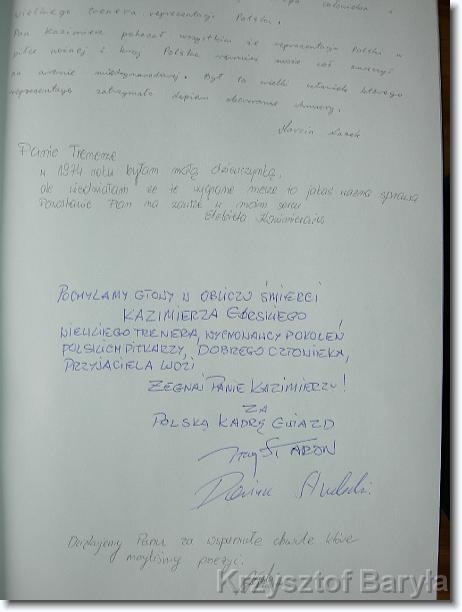 wielkiego trenera reprezentacji Polski.
Pan Kazimierz pokazał wszystkim że reprezentacja Polski w
piłce nożnej i kraj Polska również może coś znaczyć
na arenie międzynarodowej. Był to wielki człowiek którego
reprezentację zatrzymało dopiero oberwanie chmury.
Marcin
Panie Trenerze
w 1974 roku byłam małą dziewczynką,
ale wiedziałam że te wygrane mecze to jakaś ważna sprawa
Pozostanie Pan na zawsze w moim sercu
Elżbieta
POCHYLAMY GŁOWY W OBLICZU ŚMIERCI
KAZIMIERZA GÓRSKIEGO
WIELKIEGO TRENERA, WYCHOWAWCY POKOLEŃ
POLSKICH PIŁKARZY, DOBREGO CZŁOWIEKA,
PRZYJACIELA LUDZI
ŻEGNAJ PANIE KAZIMIERZU!
ZA
POLSKĄ KADRĘ GWIAZD
Dziękujemy Panu za wspaniałe chwile które
mogliśmy przeżyć.
Krzysztof Baryła